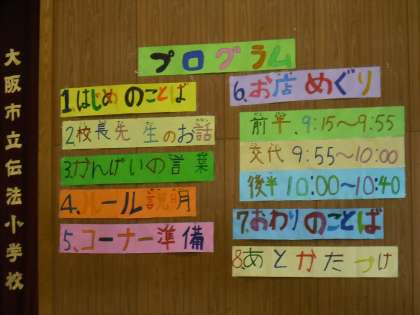 大阪市立伝法小学校
プログラム
1.はじめのことば
2.校長先生のお話
3.かんげいの言葉
4.ルール説明
5.コーナー準備
6.お店めぐり
前半、9:15～9:55
交代 9:55～10:00
後半 10:00～10:40
7.おわりのことば
8.あとかたづけ